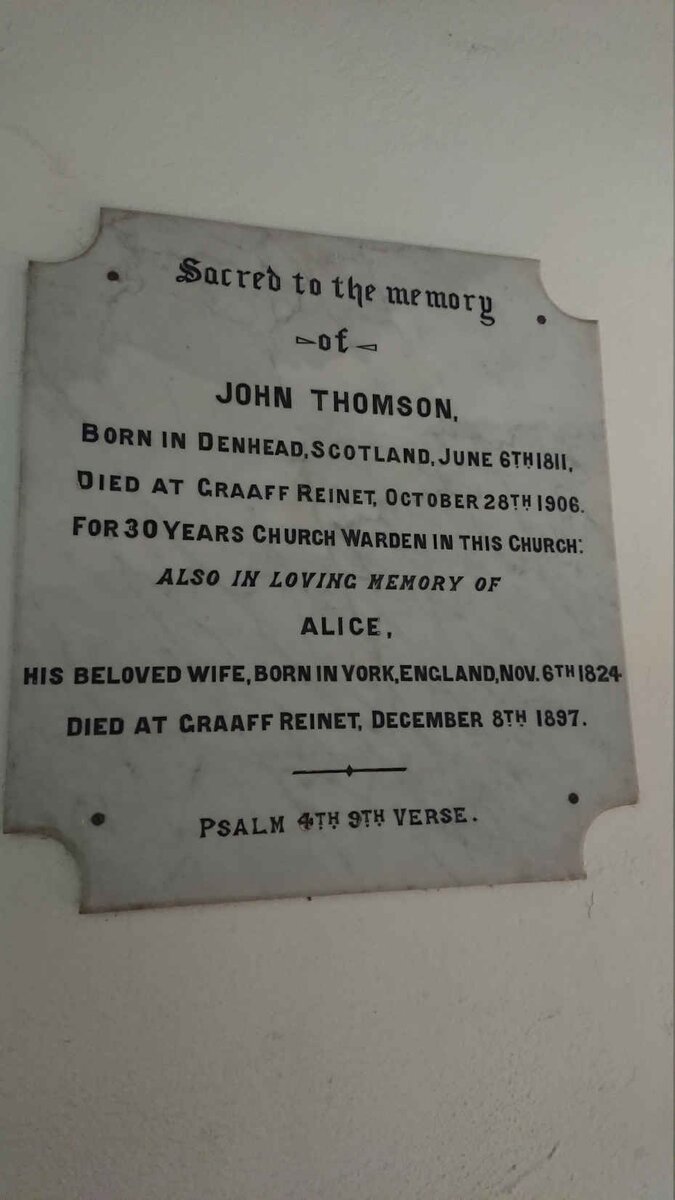 Sacred to the memory
of
JOHN THOMSON,
BORN IN DENHEAD, SCOTLAND, JUNE 6TH 1811,
DIED AT GRAAFF REINET, OCTOBER 28TH 1906.
FOR 30 YEARS CHURCH WARDEN IN THIS CHURCH:
ALSO IN LOVING MEMORY OF
ALICE,
HIS BELOVED WIFE, BORN IN YORK, ENGLAND, NOV. 6TH 1824
DIED AT GRAAFF REINET, DECEMBER 8TH 1897.
PSALM 4TH 9TH VERSE.